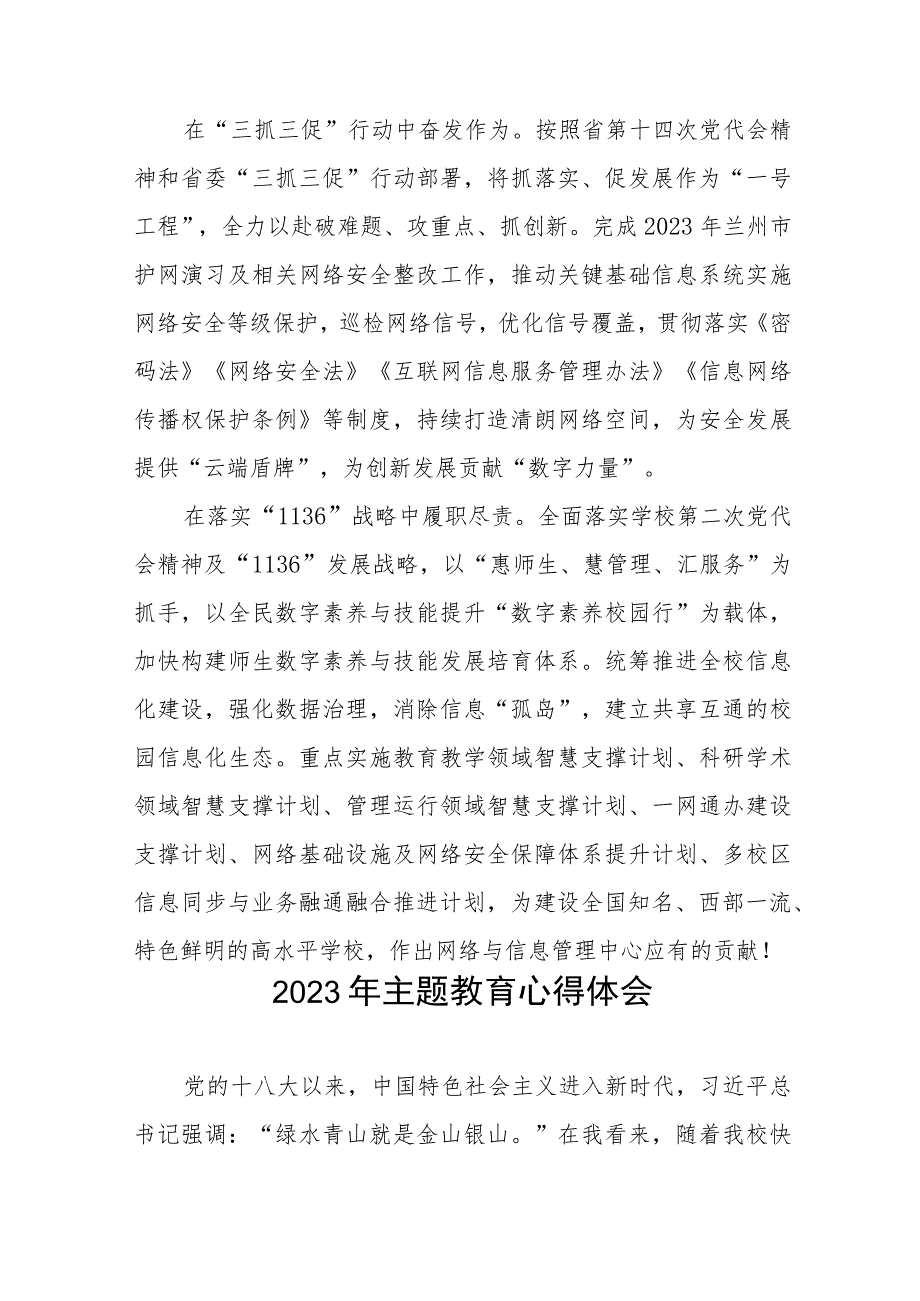 在“三抓三促”行动中奋发作为。按照省第十四次党代会精
神和省委“三抓三促”行动部署，将抓落实、促发展作为“一号
工程”，全力以赴破难题、攻重点、抓创新。完成2023年兰州市
护网演习及相关网络安全整改工作，推动关键基础信息系统实施
网络安全等级保护，巡检网络信号，优化信号覆盖，贯彻落实《密
码法》《网络安全法》《互联网信息服务管理办法》《信息网络
传播权保护条例》等制度，持续打造清朗网络空间，为安全发展
提供“云端盾牌”，为创新发展贡献“数字力量”。
在落实“1136”战略中履职尽责。全面落实学校第二次党代
会精神及“1136”发展战略，以“惠师生、慧管理、汇服务”为
抓手，以全民数字素养与技能提升“数字素养校园行”为载体，
加快构建师生数字素养与技能发展培育体系。统筹推进全校信息
化建设，强化数据治理，消除信息“孤岛”，建立共享互通的校
园信息化生态。重点实施教育教学领域智慧支撑计划、科研学术
领域智慧支撑计划、管理运行领域智慧支撑计划、一网通办建设
支撑计划、网络基础设施及网络安全保障体系提升计划、多校区
信息同步与业务融通融合推进计划，为建设全国知名、西部一流、
特色鲜明的高水平学校，作出网络与信息管理中心应有的贡献！
2023年主题教育心得体会
党的十八大以来，中国特色社会主义进入新时代，习近平总
书记强调：“绿水青山就是金山银山。”在我看来，随着我校快